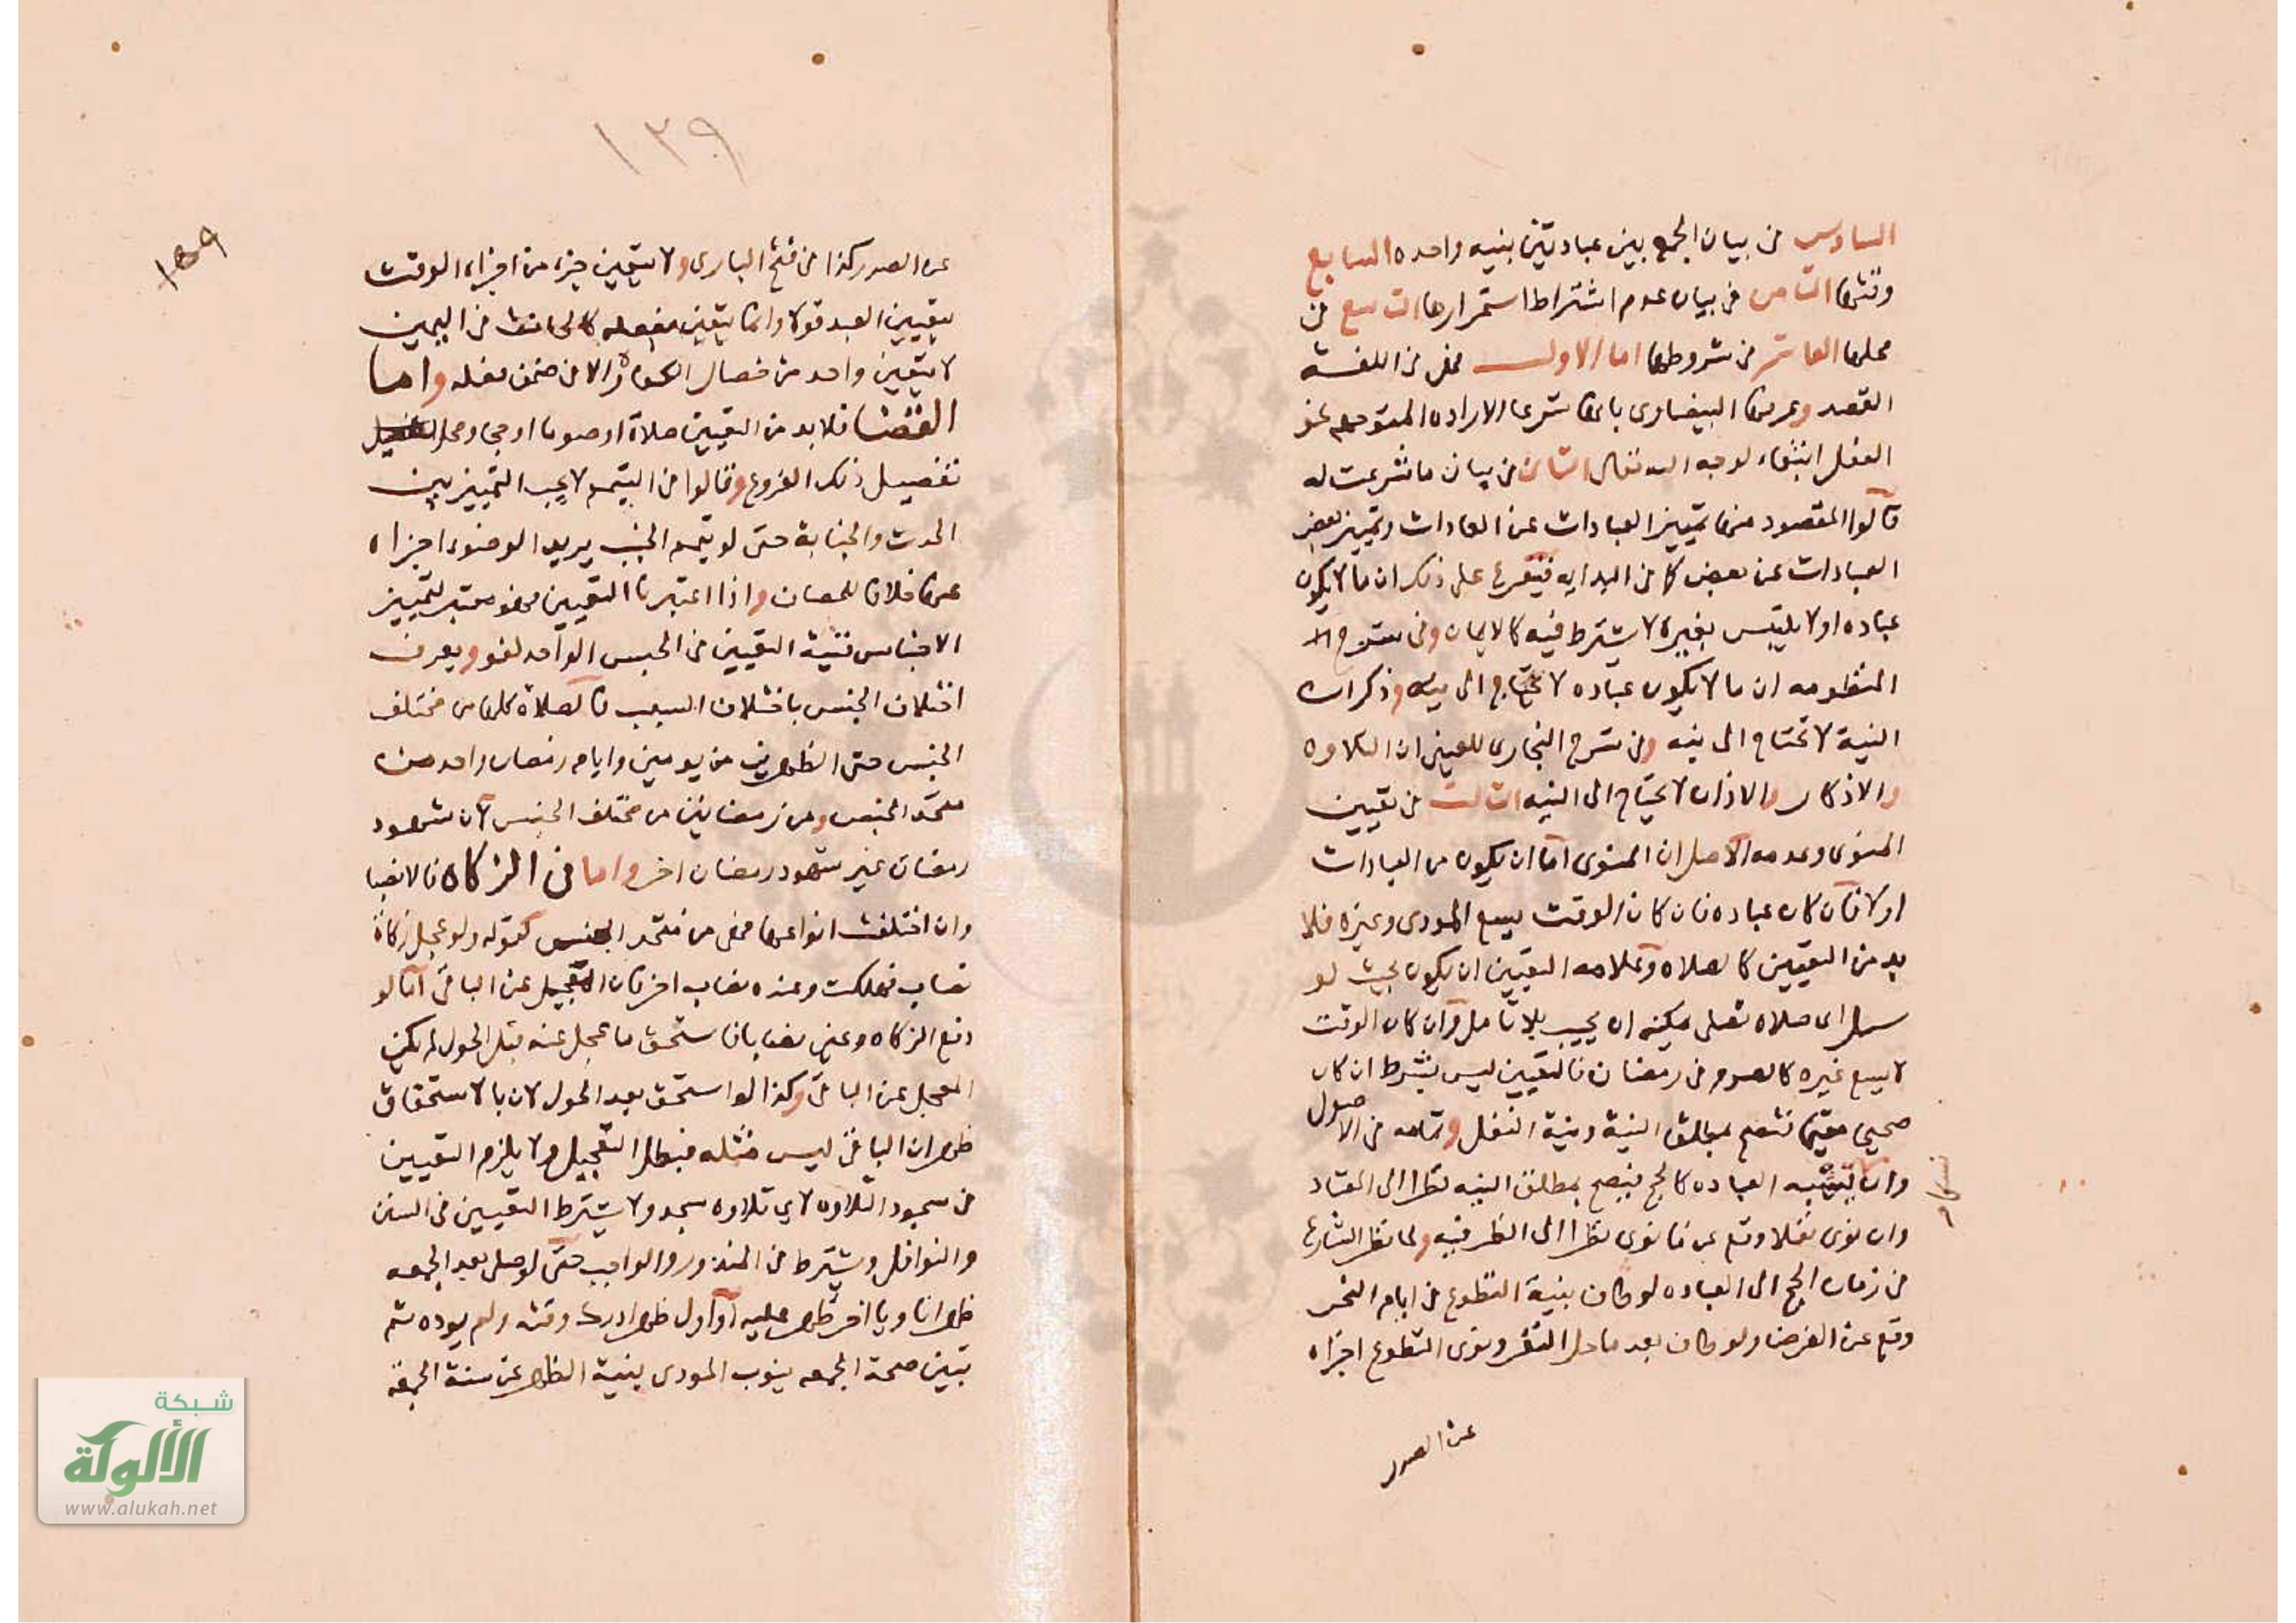 السادس في بيان الجمع بين عبادتين بنيه واحده السابع
وقتها الثامن في بيان عدم اشتراط استمرارها التاسع في
محلها العاشر في شروطها اما الاول فهي في اللغة
القصد وعرفها البيضاوي بانها شرعا الاراده المتوجهه نحو
الفعل ابتغاء لوجه الله تعالى الثاني في بيان ما شرعت له
قالوا المقصود منها تمييز العبادات عن العادات وتمييز بعض
العبادات عن بعض كما في البدايه فتفرع على ذلك ان ما لا يكون
عباده او لا يلتبس بغيره لا يشترط فيه كالايمان وفي شرح
المنظومه ان ما لا يكون عباده لا يحتاج الى نيه وذكر ان
النية لا تحتاج الى نيه وفي شرح البخاري للعيني ان التلاوه
والاذكار والاذان لا يحتاج الى النيه الثالث في تعيين
المنوي وعدمه الاصل ان المنوي اما ان يكون من العبادات
اولا فان كان عباده فان كان الوقت يسع المودى وغيره فلا
بد من التعيين كالصلاه وعلامه التعيين ان يكون بحيث لو
سئل اي صلاه تصلي يمكنه ان يجيب بلا تامل وان كان الوقت
لا يسع غيره كالصوم في رمضان فالتعيين ليس بشرط ان كان
صحيحا مقيما فتصح بمطلق النية ونية النفل وتمامه في الاصول
وان العباده كالحج فيصح بمطلق النيه نظرا الى المعتاد
وان نوى نفلا وقع عن ما نوى نظرا الى الظرفيه ولما نظر الشارع
في زمان الحج الى العباده لو طاف بنية التطوع في ايام النحر
وقع عن الفرض ولو طاف بعد ما حل النفر ونوى التطوع اجزاه
عن الصدر
١٣٩
١٣٩
عن الصدر كذا في فتح الباري ولا يتعين جزء من اجزاء الوقت
بتعيين العبد قولا وانما يتعين بفعله كالحانث في اليمين
لا يتعين واحد من خصال الكفارة الا في ضمن فعله واما
القضا فلا بد من التعيين صلاة او صوما او حجا ومحل
تفصيل ذلك الفروع وقالوا في التيمم لا يجب التمييز بين
الحدث والجنابة حتى لو تيمم الجنب يريد الوضوء اجزاه
عنها خلافا للخصاف واذا اعتبرنا التعيين فهو معتبر لتمييز
الاجناس فنية التعيين في الجنس الواحد لغو ويعرف
اختلاف الجنس باختلاف السبب فالصلاة كلها من مختلف
الجنس حتى الظهرين من يومين وايام رمضان واحد من
متحد الجنس ومن رمضانين من مختلف الجنس لان شهود
رمضان غير شهود رمضان اخر واما في الزكاة فالانصبا
وان اختلفت انواعها فهي من متحد الجنس كقوله ولو عجل زكاة
نصاب فهلكت وعنده نصاب اخر كان التعجيل عن الباقي اما لو
دفع الزكاه وعين نصابا فاستحق ما عجل عنه قبل الحول لم يكن
المعجل عن الباقي وكذا لو استحق بعد الحول لان بالاستحقاق
ظهر ان الباقي ليس مثله فبطل التعجيل ولا يلزم التعيين
في سجود التلاوه لاي تلاوه سجد ولا يشترط التعيين في السنن
والنوافل ويشترط في المنذور والواجب حتى لو صلى بعد الجمعه
ظهرا ناويا اخر ظهر عليه او اول ظهر ادرك وقته ولم يوده ثم
تبين صحة الجمعه ينوب المودى بنية الظهر عن سنة الجمعة
شبكة
الألوكة
www.alukah.net